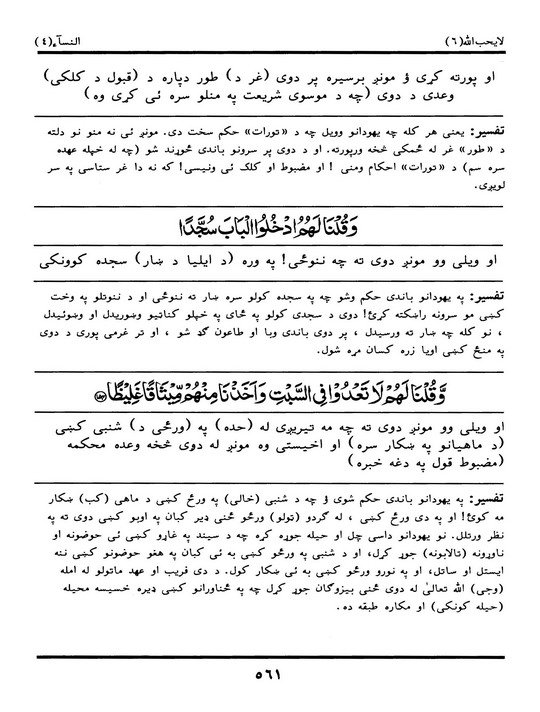 لايحب الله (٦) النسآء (٤)
او پورته کړی ؤ مونږ برسیره پر دوی (غر د) طور دپاره د (قبول د کلکی)
وعدی د دوی (چه د موسوی شریعت په منلو سره ئی کړی وه)
تفسیر: یعنی هر کله چه یهودانو وویل چه د «تورات» حکم سخت دی. مونږ ئی نه منو نو دلته
د «طور» غر له ځمکی څخه ورپورته. او د دوی پر سرونو باندی ځوړند شو (چه له خپله عهده
سره سم) د «تورات» احکام ومنی! او مضبوط او کلک ئی ونیسی! که نه دا غر ستاسی پر سر
لویږی.
وَقُلْنَا لَهُمُ ادْخُلُوا الْبَابَ سُجَّدًا
او ویلی وو مونږ دوی ته چه ننوځی! په وره (د ایلیا د ښار) سجده کوونکی
تفسیر: په یهودانو باندی حکم وشو چه په سجده کولو سره ښار ته ننوځی او د ننوتلو په وخت
کښی مو سرونه راښکته کړئ! دوی د سجدی کولو په ځای په خپلو کناتیو وښوریدل او وښوئیدل
، نو کله چه ښار ته ورسیدل ، پر دوی باندی وبا او طاعون ګډ شو ، او تر غرمی پوری د دوی
په منځ کښی اویا زره کسان مړه شول.
وَّقُلْنَا لَهُمْ لَا تَعْدُوْا فِى السَّبْتِ وَاَخَذْنَا مِنْهُمْ مِّيْثَاقًا غَلِيْظًا
او ویلی وو مونږ دوی ته چه مه تیریږی له (حده) په (ورځی د) شنبی کښی
(د ماهیانو په ښکار سره) او اخیستی وه مونږ له دوی څخه وعده محکمه
(مضبوط قول په دغه خبره)
تفسیر: په یهودانو باندی حکم شوی ؤ چه د شنبی (خالی) په ورځ کښی د ماهی (کب) ښکار
مه کوئ! او په دی ورځ کښی ، له ګردو (تولو) ورځو ځنی ډیر کبان په اوبو کښی دوی ته په
نظر ورتلل. نو یهودانو داسی چل او حیله جوړه کړه چه د سیند په غاړو کښی ئی حوضونه او
ناوړونه (تالابونه) جوړ کړل، او د شنبی په ورځو کښی به ئی کبان په هغو حوضونو کښی ننه
ایستل او ساتل، او په نورو ورځو کښی به ئی ښکار کول. د دی فریب او عهد ماتولو له امله
(وجی) الله تعالیٰ له دوی ځنی بیزوګان جوړ کړل چه په ځناورانو کښی ډیره خسیسه محیله
(حیله کونکی) او مکاره طبقه ده.
٥٦١